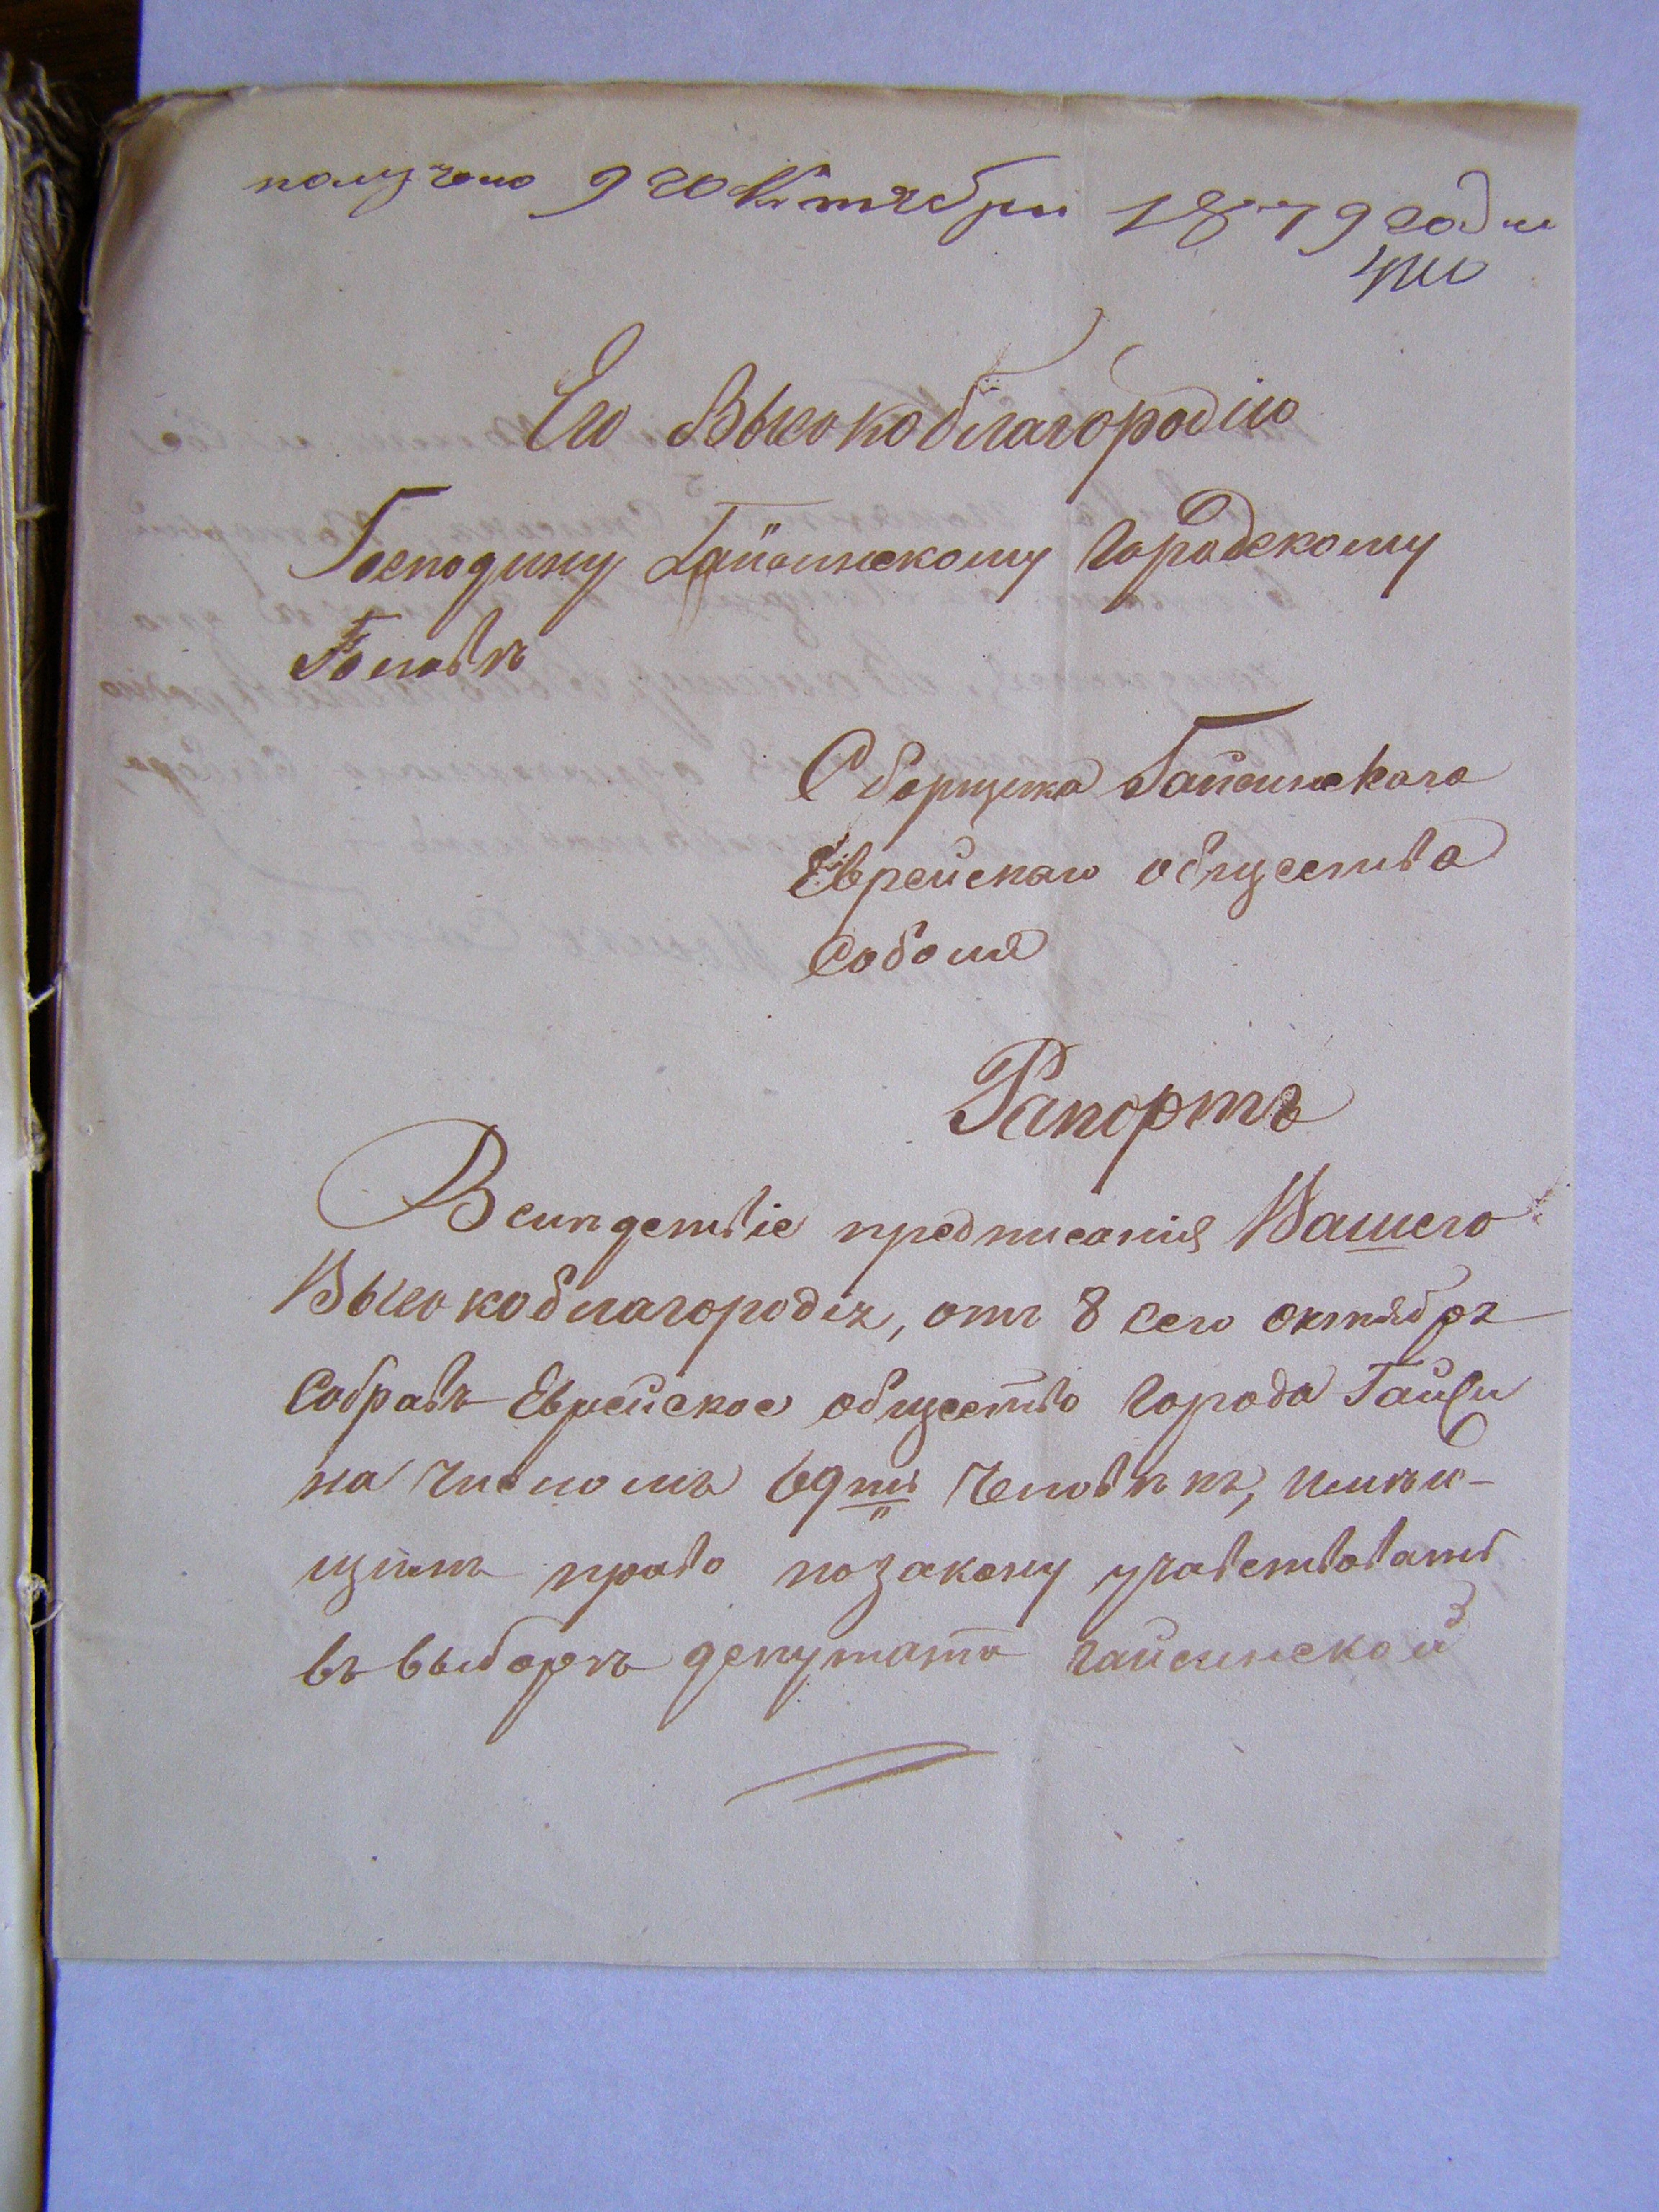 получено 9го Октября 1879 года
Его Высокоблагородію
Господину Гайсинскому Городскому
Головѣ
Сборщика Гайсинскаго
Еврейскаго общества
Соболя
Рапортъ
Вслѣдствіе предписанія Вашего
Высокоблагородія, отъ 8 сего октября
Собравъ Еврейское общество города Гайси
на числомъ 69ти человѣкъ, имѣю-
щихъ право по закону учавствовать
въ выборѣ депутата гайсинской